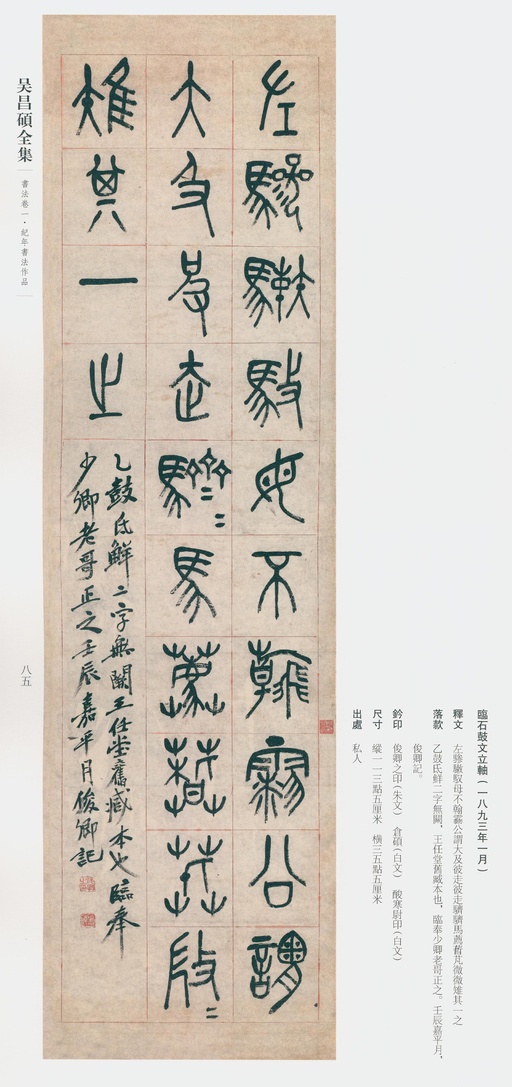 臨石鼓文立軸(一八九三年一月)
釋文 左驂馭母不翰霝公謂大及彼走彼走馬薦芃微微雉其一之
落款 乙鼓氐鮮二字無闕，王任堂舊臧本也，臨奉少卿老哥正之。壬辰嘉平月，
俊卿記。
鈐印 俊卿之印(朱文) 倉碩(白文) 酸寒尉印(白文)
尺寸 縱一一三點五厘米 橫三五點五厘米
出處 私人
左驂馭母不翰霝公謂
大走馬薦芃
雉其一之
乙鼓氐鮮二字無闕王任堂舊臧本也臨奉
少卿老哥正之壬辰嘉平月俊卿記
吴昌碩全集
書法卷一·紀年書法作品
八五